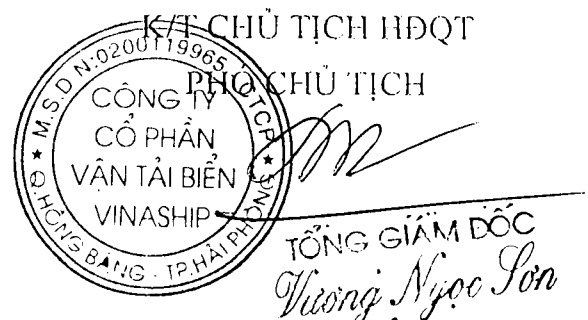 K/T CHỦ TỊCH HĐQT
PHÓ CHỦ TỊCH
M.S.D N:0200119965 CTCP
CÔNG TY
CỔ PHẦN
VẬN TẢI BIỂN
VINASHIP
Q.HỒNG BÀNG - TP.HẢI PHÒNG
TỔNG GIÁM ĐỐC
Vương Ngọc Sơn